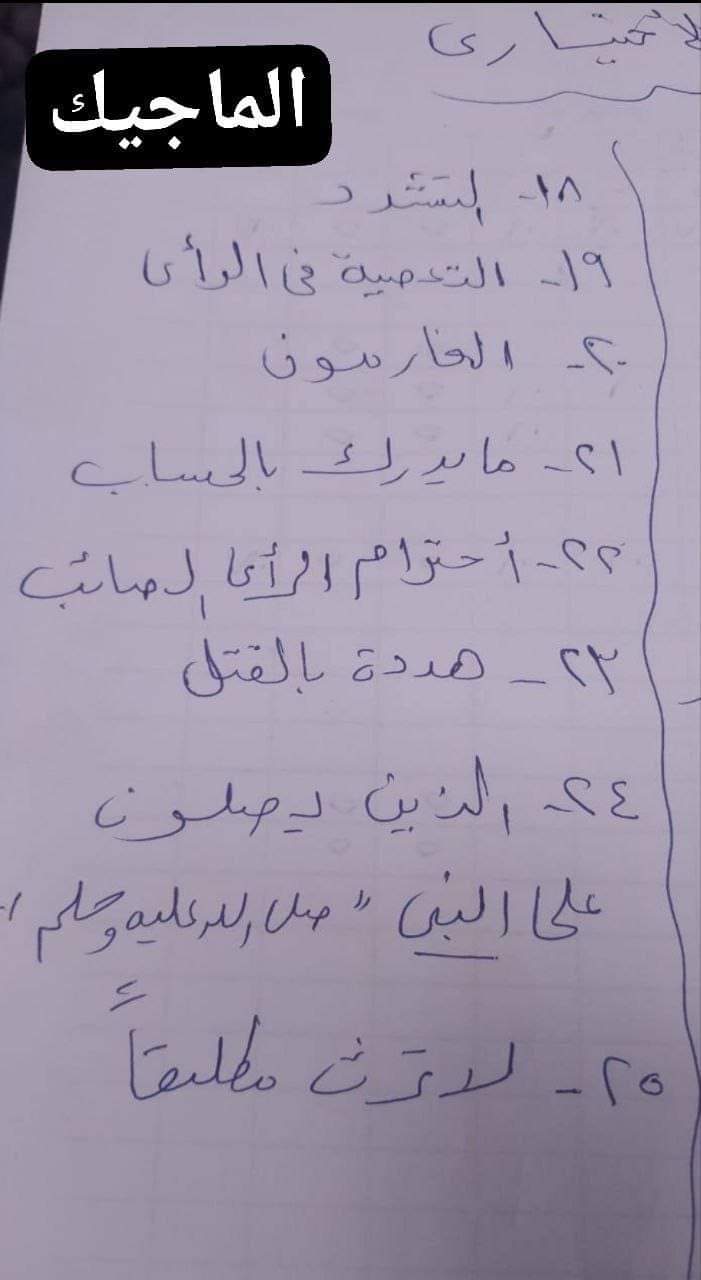 لاختيارى
الماجيك
١٨- التشدد
١٩- التعصب فى الرأى
٢٠- الغارمون
٢١- ما يدرك بالحساب
٢٢- أحترام الرأى الصائب
٢٣- هددة بالقتل
٢٤- الذين يصلون
على النبى " صلى الله عليه وسلم "
٢٥- لا ترث مطلقاً